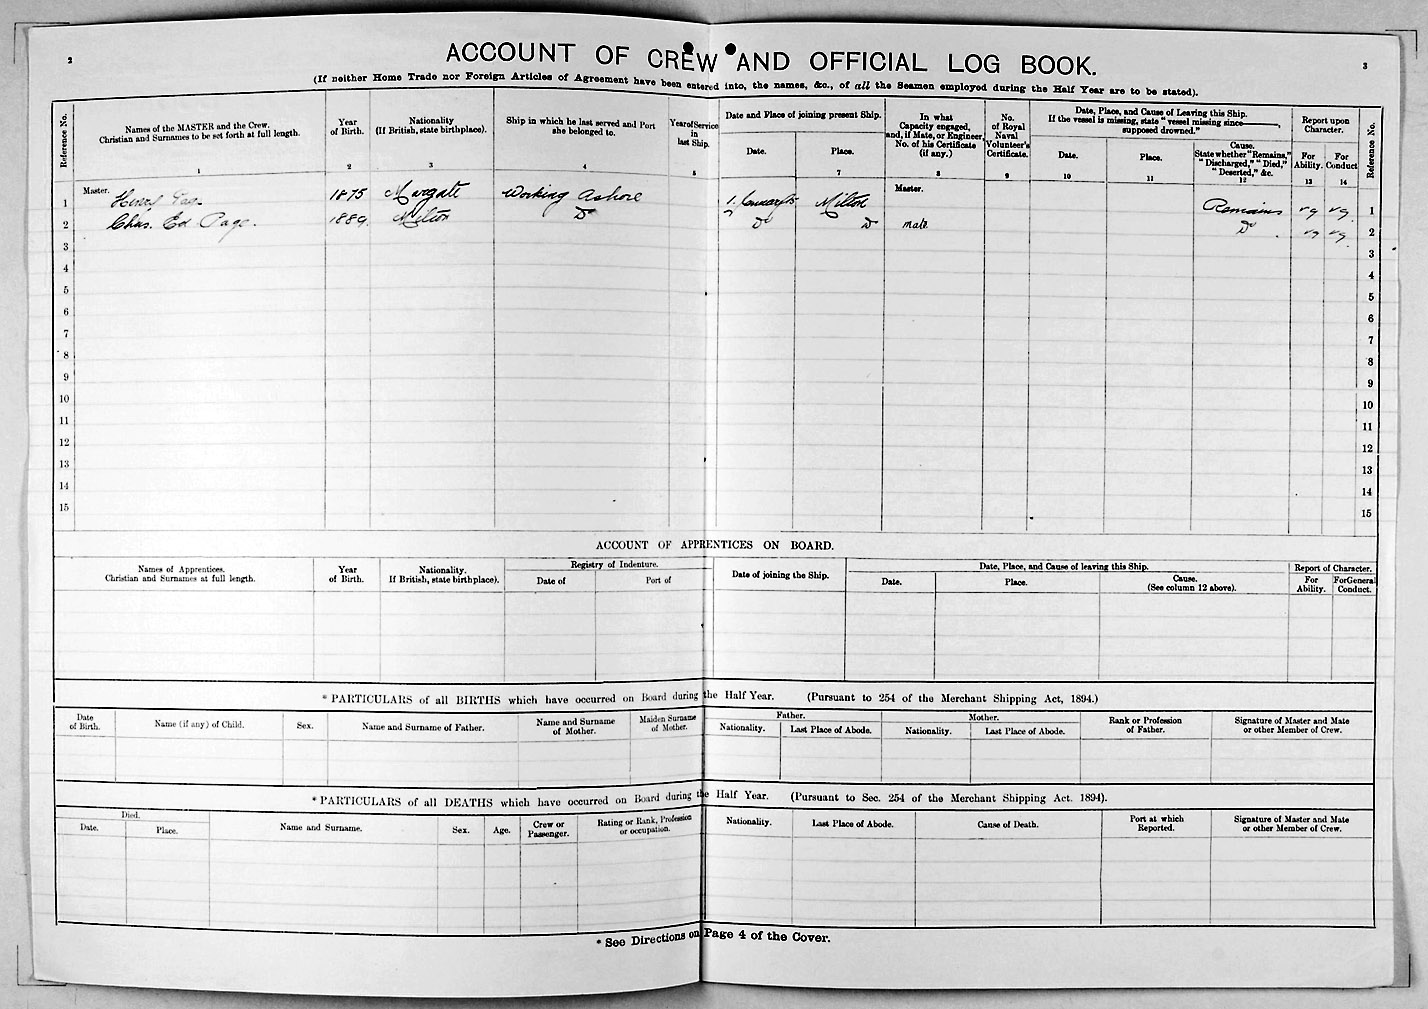 2
3
ACCOUNT OF CREW AND OFFICIAL LOG BOOK.
(If neither Home Trade nor Foreign Articles of Agreement have been entered into, the names, &c., of all the Seamen employed during the Half Year are to be stated).
Reference No.
Names of the MASTER and the Crew.
Christian and Surnames to be set forth at full length.
1
Year
of Birth.
2
Nationality
(If British, state birthplace).
3
Ship in which he last served and Port
she belonged to.
4
Year of Service
in
last Ship.
5
Date and Place of joining present Ship.
Date.
Place.
7
In what
Capacity engaged,
and, if Mate, or Engineer,
No. of his Certificate
(if any.)
8
No.
of Royal
Naval
Volunteer's
Certificate.
9
Date, Place, and Cause of Leaving this Ship.
If the vessel is missing, state "vessel missing since———,
supposed drowned."
Date.
10
Place.
11
Cause.
State whether "Remains,"
"Discharged," "Died,"
"Deserted," &c.
12
Report upon
Character.
For
Ability.
13
For
Conduct
14
Reference No.
Master.
1 Henry Page 1875 Margate Working Ashore 1 January Milton Master. Remains vg vg 1
2 Chas. Ed Page. 1889. Milton Do Do Do mate Do vg vg 2
3 3
4 4
5 5
6 6
7 7
8 8
9 9
10 10
11 11
12 12
13 13
14 14
15 15
ACCOUNT OF APPRENTICES ON BOARD.
Names of Apprentices.
Christian and Surnames at full length.
Year
of Birth.
Nationality.
If British, state birthplace).
Registry of Indenture.
Date of
Port of
Date of joining the Ship.
Date, Place, and Cause of leaving this Ship.
Date.
Place.
Cause.
(See column 12 above).
Report of Character.
For
Ability.
For General
Conduct.
* PARTICULARS of all BIRTHS which have occurred on Board during the Half Year. (Pursuant to 254 of the Merchant Shipping Act, 1894.)
Date
of Birth.
Name (if any) of Child.
Sex.
Name and Surname of Father.
Name and Surname
of Mother.
Maiden Surname
of Mother.
Father.
Nationality.
Last Place of Abode.
Mother.
Nationality.
Last Place of Abode.
Rank or Profession
of Father.
Signature of Master and Mate
or other Member of Crew.
* PARTICULARS of all DEATHS which have occurred on Board during the Half Year. (Pursuant to Sec. 254 of the Merchant Shipping Act. 1894).
Died.
Date.
Place.
Name and Surname.
Sex.
Age.
Crew or
Passenger.
Rating or Rank, Profession
or occupation.
Nationality.
Last Place of Abode.
Cause of Death.
Port at which
Reported.
Signature of Master and Mate
or other Member of Crew.
* See Directions on Page 4 of the Cover.